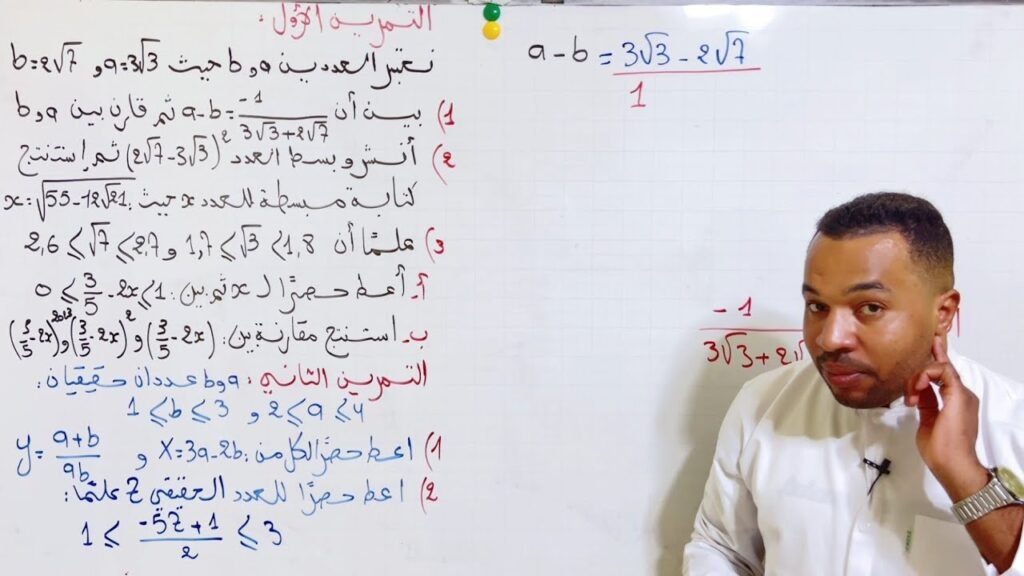 التمرين الأول:
نعتبر العددين a و b حيث a=3√3 و b=2√7
1) بين أن a-b = -1/(3√3+2√7) ثم قارن بين a و b
2) أنشر و بسط العدد (2√7-3√3)² ثم إستنتج
كتابة مبسطة للعدد x حيث: x=√(55-12√21)
3) علمًا أن 1,7 ⩽ √3 ⩽ 1,8 و 2,6 ⩽ √7 ⩽ 2,7
أ- أعط حصرًا ل x ثم بين: 0 ⩽ 3/5 - 2x ⩽ 1
ب- استنتج مقارنة بين: (3/5 - 2x) و (3/5 - 2x)² و (3/5 - 2x)
التمرين الثاني: a و b عددان حقيقيان:
2 ⩽ a ⩽ 4 و 1 ⩽ b ⩽ 3
1) اعط حصرًا لكل من: X=3a-2b و y = (a+b)/(ab)
2) اعط حصرًا للعدد الحقيقي Z علمًا:
1 ⩽ (-5Z+1)/2 ⩽ 3
a-b = (3√3 - 2√7)/1
-1/(3√3+2√